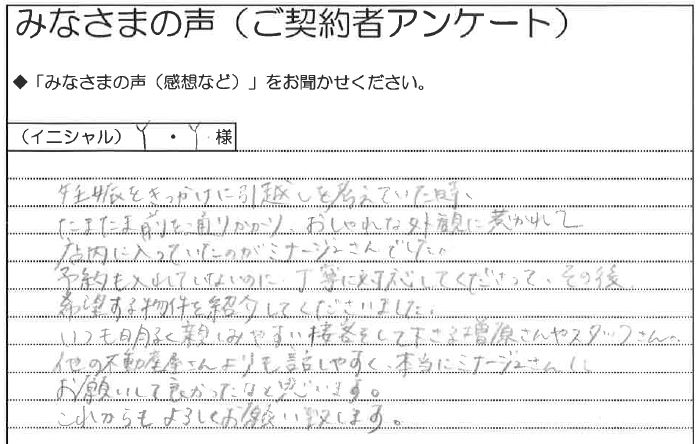 みなさまの声（ご契約者アンケート）
◆「みなさまの声（感想など）」をお聞かせください。
（イニシャル） Y ・ Y 様
妊娠をきっかけに引越しを考えていた時、
たまたま前を通りかかり、おしゃれな外観に惹かれて
店内に入っていったのがミナージュさんでした。
予約も入れていないのに、丁寧に対応してくださって、その後、
希望する物件を紹介してくださいました。
いつも明るく親しみやすい接客をして下さる増原さんやスタッフさん。
他の不動産屋さんよりも話しやすく、本当にミナージュさんに
お願いして良かったなと思います。
これからもよろしくお願い致します。